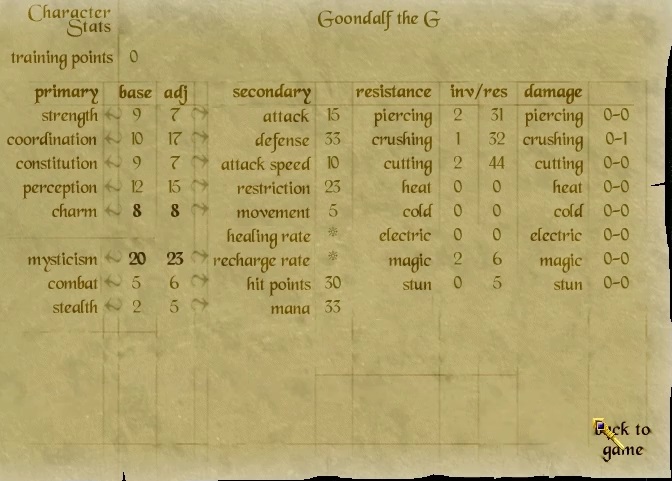 Character
Stats
Goondalf the G
training points 0
primary base adj secondary resistance inv/res damage
strength 9 7 attack 15 piercing 2 31 piercing 0-0
coordination 10 17 defense 33 crushing 1 32 crushing 0-1
constitution 9 7 attack speed 10 cutting 2 44 cutting 0-0
perception 12 15 restriction 23 heat 0 0 heat 0-0
charm 8 8 movement 5 cold 0 0 cold 0-0
healing rate * electric 0 0 electric 0-0
mysticism 20 23 recharge rate * magic 2 6 magic 0-0
combat 5 6 hit points 30 stun 0 5 stun 0-0
stealth 2 5 mana 33
back to
game